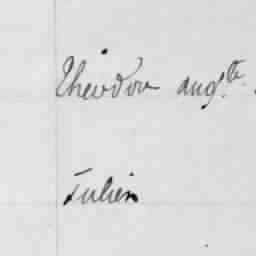 Theodor aug.te
Julien